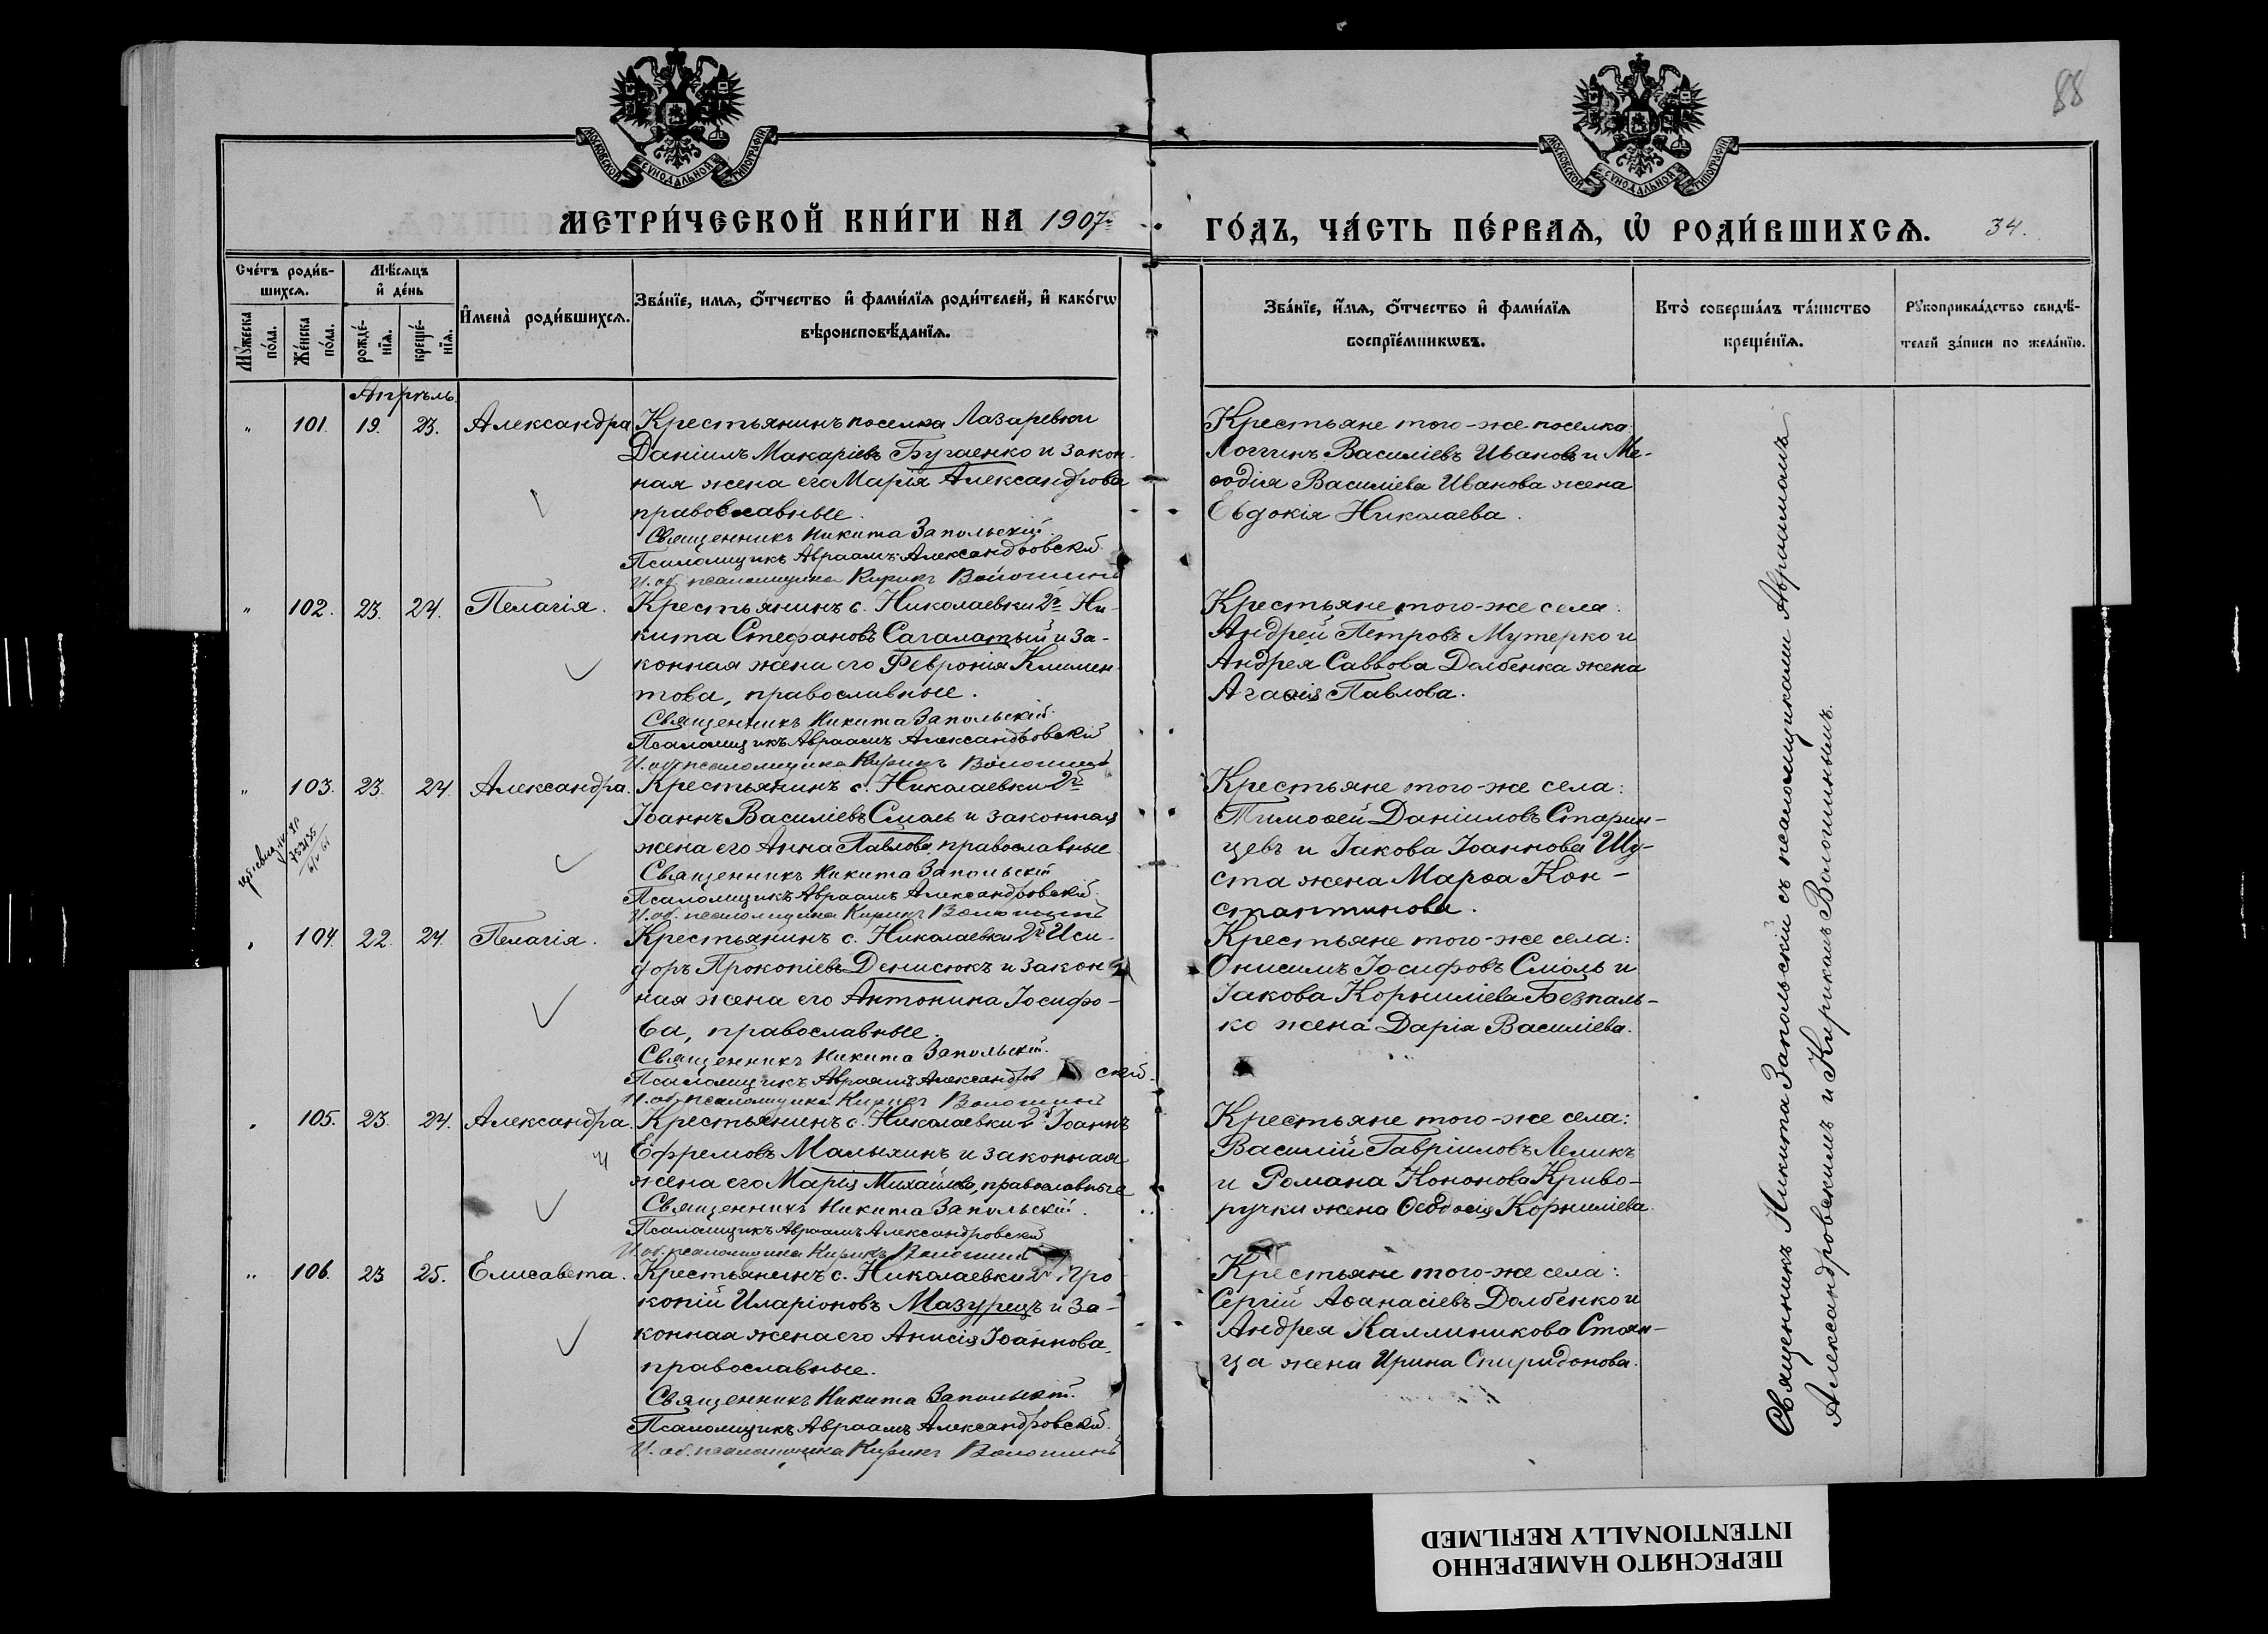 88
МОСКОВСКОЙ СУНОДАЛЬНОЙ ТИПОГРАФІИ
МОСКОВСКОЙ СУНОДАЛЬНОЙ ТИПОГРАФІИ
МЕТРИ́ЧЕСКОЙ КНИ́ГИ НА 1907
ГО́ДЪ, ЧА́СТЬ ПЕ́РВАѦ, Ѡ҆ РОДИ́ВШИХСѦ. 34.
Сче́тъ роди́в-
шихсѧ.
Мꙋ́жеска по́ла.
Же́нска по́ла.
Мѣ́сѧцъ
и҆ де́нь
рожде́-нїѧ.
креще́-нїѧ.
И҆мена̀ роди́вшихсѧ.
Зва́нїе, имѧ, ѻ҆́тчество и҆ фами́лїѧ роди́телей, и҆ како́гѡ
вѣроисповѣ́данїѧ.
Зва́нїе, и҆́мѧ, ѻ҆́тчество и҆ фами́лїѧ
воспрїе́мникѡвъ.
Кто̀ соверша́лъ та́инство
креще́нїѧ.
Рꙋкоприкла́дство свидѣ́-
телей за́писи по жела́нїю.
Апрѣль
" 101. 19. 23. Александра
Крестьянинъ поселка Лазаревки
Даніилъ Макаріевъ Бугаенко и закон-
ная жена его Марія Александрова
православные.
Священникъ Никита Запольскій.
Псаломщикъ Авраамъ Александровскій
И. об. псаломщика Кирикъ Волошинъ
Крестьяне того-же поселка:
Логгинъ Василіевъ Ивановъ и Ме-
ѳодія Василіева Иванова жена
Евдокія Николаева.
" 102. 23. 24. Пелагія.
Крестьянинъ с. Николаевки 2й Ни-
кита Стефановъ Сагалатый и за-
конная жена его Февронія Климен-
това, православные.
Священникъ Никита Запольскій.
Псаломщикъ Авраамъ Александровскій
И. об. псаломщика Кирикъ Волошинъ
Крестьяне того-же села:
Андрей Петровъ Мутерко и
Андрея Саввова Долбенка жена
Агаѳія Павлова.
" 103. 23. 24. Александра.
Крестьянинъ с. Николаевки 2й
Іоаннъ Василіевъ Смоль и законная
жена его Анна Павлова, православные
Священникъ Никита Запольскій
Псаломщикъ Авраамъ Александровскій.
И. об. псаломщика Кирикъ Волошинъ
Крестьяне того-же села:
Тимоѳей Даніиловъ Старин-
цевъ и Іакова Іоаннова Шу-
ста жена Марѳа Кон-
стантинова.
" 104. 22. 24. Пелагія.
Крестьянинъ с. Николаевки 2й Иси-
доръ Прокопіевъ Денисюкъ и закон-
ная жена его Антонина Іосифо-
ва, православные.
Священникъ Никита Запольскій.
Псаломщикъ Авраамъ Александровскій.
И. об. псаломщика Кирикъ Волошинъ
Крестьяне того-же села:
Онисимъ Іосифовъ Смоль и
Іакова Корниліева Безпаль-
ко жена Дарія Василіева.
" 105. 23. 24. Александра.
Крестьянинъ с. Николаевки 2й Іоаннъ
Ефремовъ Малыхинъ и законная
жена его Марія Михайлова, православные
Священникъ Никита Запольскій.
Псаломщикъ Авраамъ Александровскій
И. об. псаломщика Кирикъ Волошинъ
Крестьяне того-же села:
Василій Гавріиловъ Лемикъ
и Романа Кононова Криво-
ручки жена Ѳеодосія Корниліева.
" 106. 23 25. Елисавета.
Крестьянинъ с. Николаевки 2й Про-
копій Иларіоновъ Мазурецъ и за-
конная жена его Анисія Іоаннова,
православные.
Священникъ Никита Запольскій.
Псаломщикъ Авраамъ Александровскій.
И. об. псаломщика Кирикъ Волошинъ
Крестьяне того-же села:
Сергій Аѳанасіевъ Долбенко и
Андрея Каллиникова Стоян-
ца жена Ирина Спиридонова.
Священникъ Никита Запольскій съ псаломщиками Авраамомъ
Александровскимъ и Кирикомъ Волошинымъ.
ПЕРЕСНЯТО НАМЕРЕННО
INTENTIONALLY REFILMED